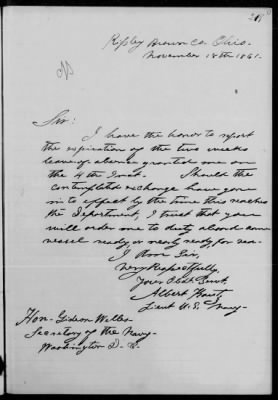 Ripley Brown Co. Ohio.
November 18th 1861.
Sir:
I have the honor to report
the expiration of the two weeks
leave of absence granted me on
the 4th Inst. Should the
contemplated exchange have gone
into effect by the time this reaches
the Department, I trust that you
will order me to duty aboard some
vessel ready, or nearly ready for sea.
I Am Sir,
Very Respectfully,
Your Obdt. Servt.
Albert Kautz
Lieut U.S. Navy.
Hon. Gideon Welles
Secretary of the Navy
Washington D. C.